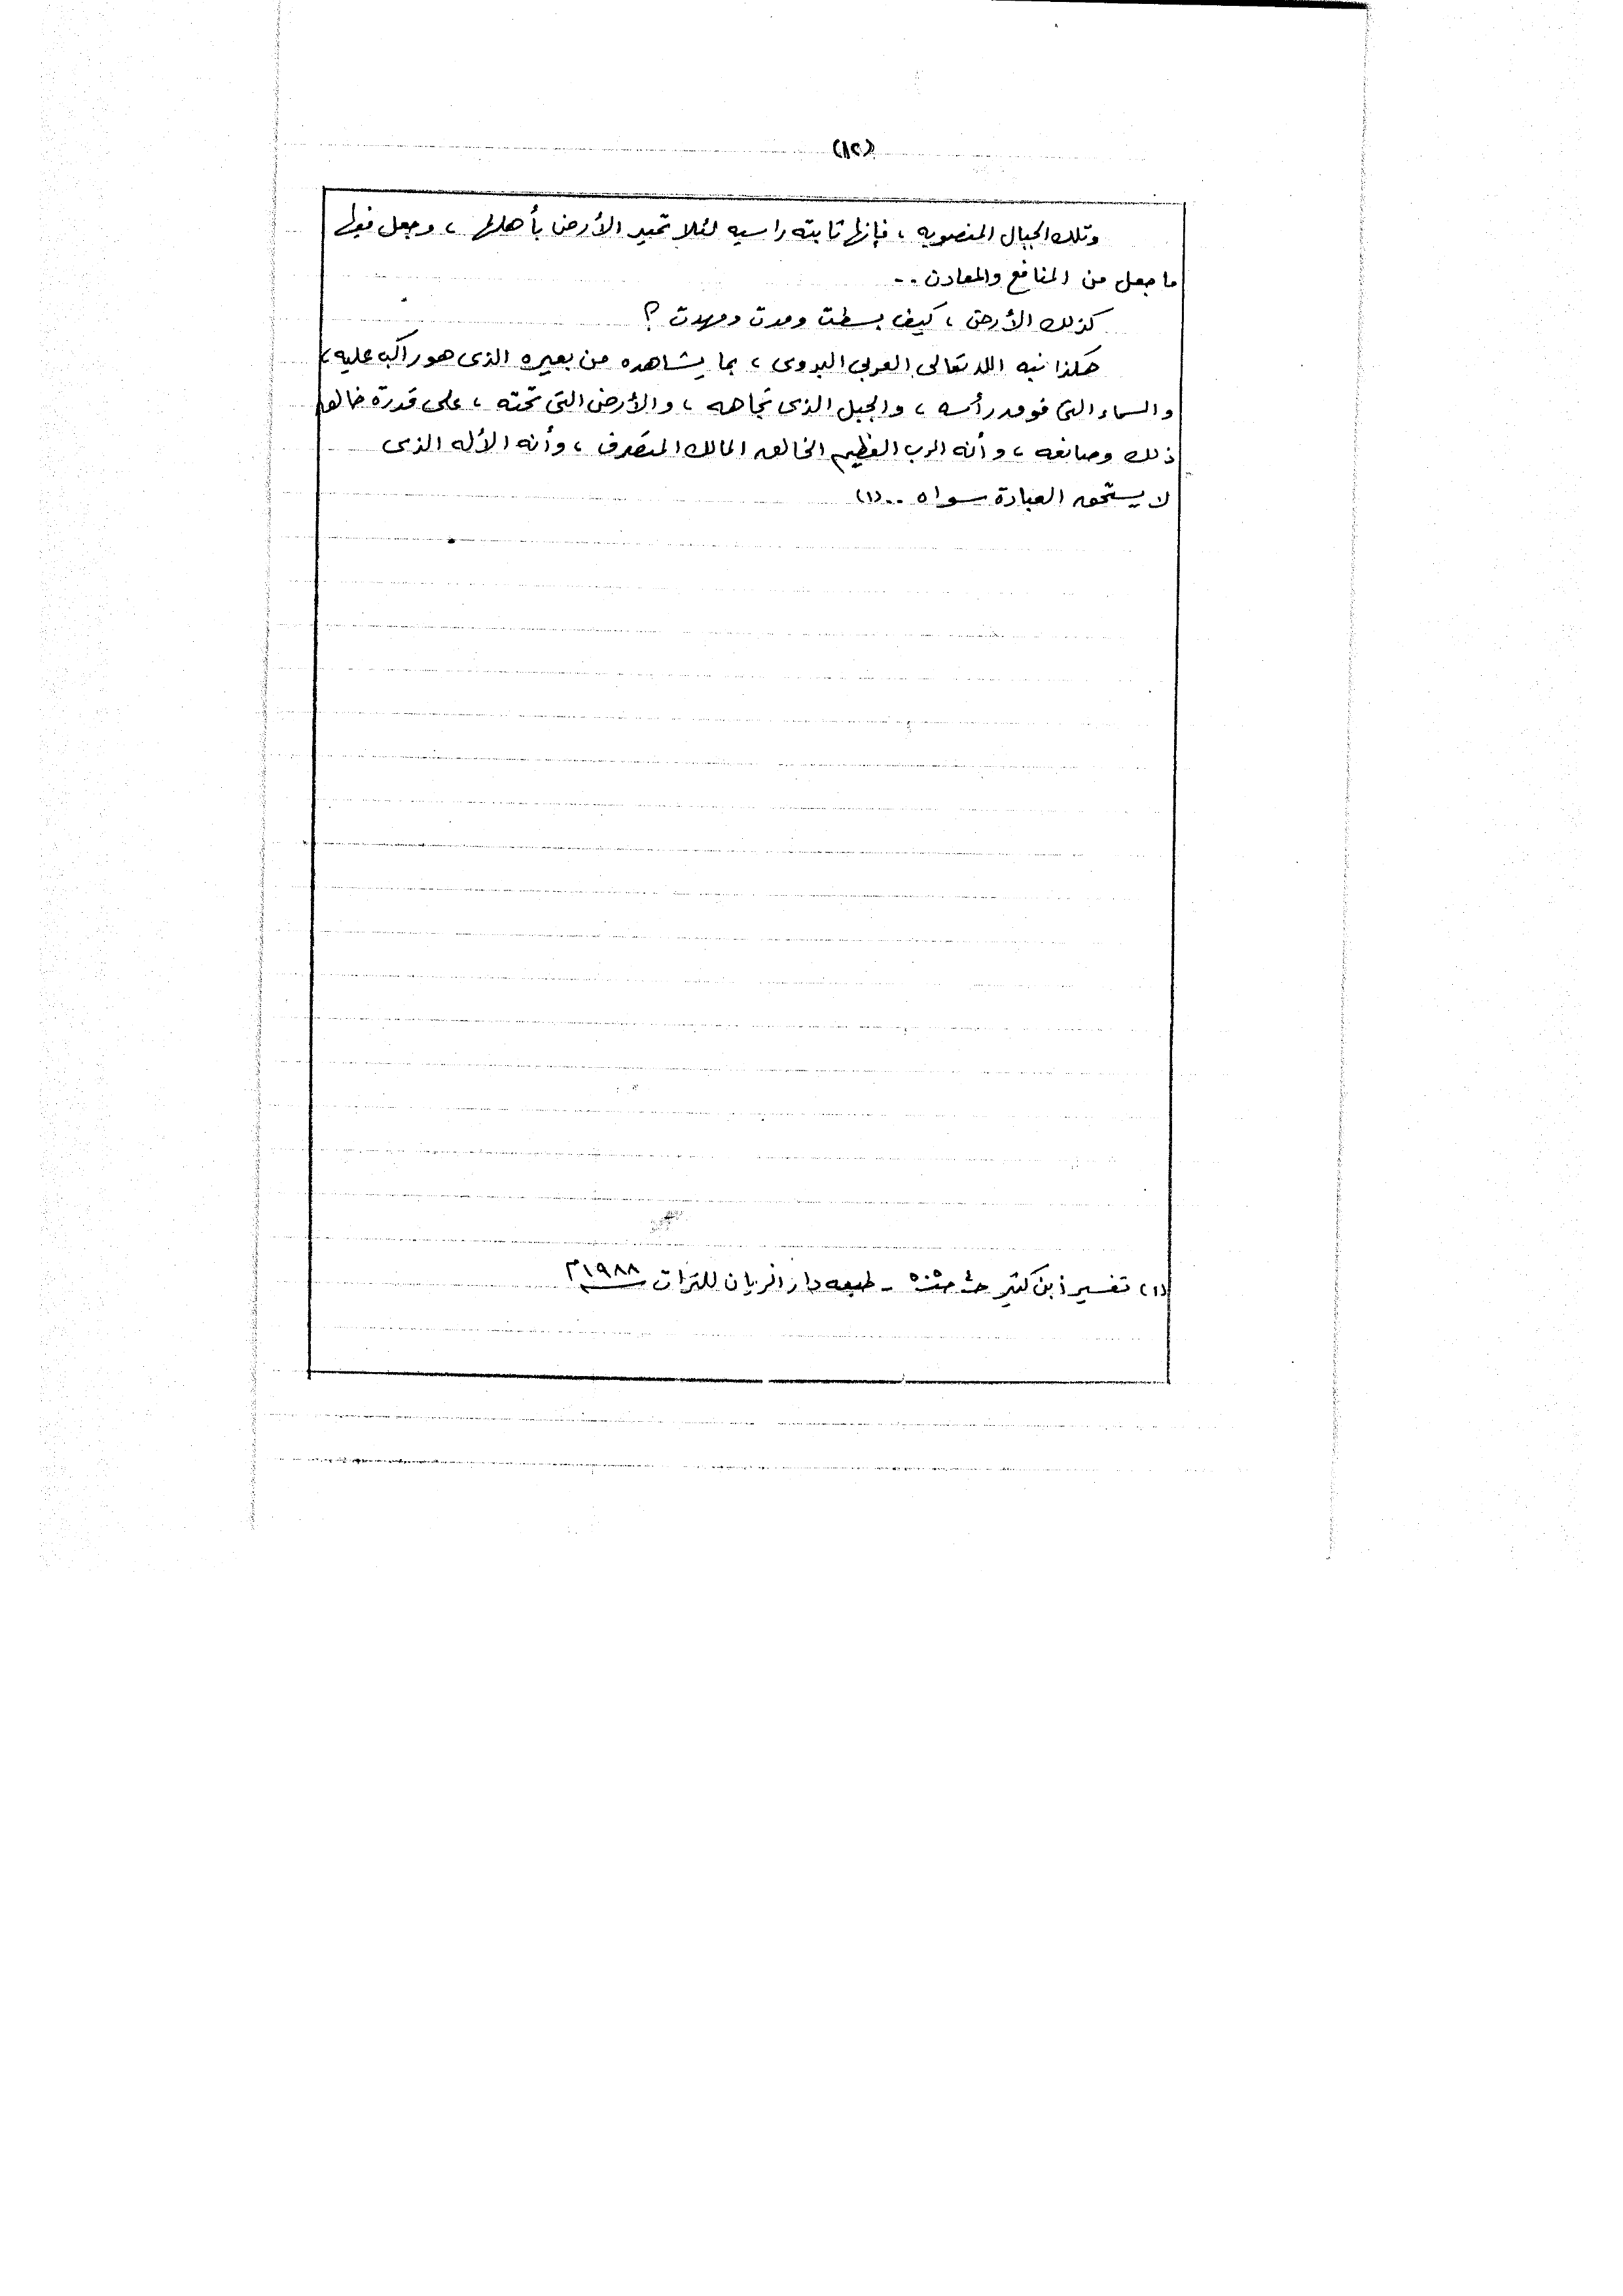 (١٢)
وتلك الجبال المنصوبه ، فإنها ثابته راسيه لئلا تميد الأرض بأهلها ، وجعل فيها
ما جعل من المنافع والمعادن ..
كذلك الأرض ، كيف بسطت ومدت ومهدت ؟
هكذا نبه الله تعالى العربى البدوى ، بما يشاهده من بعيره الذى هو راكب عليه ،
والسماء التى فوق رأسه ، والجبل الذى تجاهه ، والأرض التى تحته ، على قدرة خالق
ذلك وصانعه ، وأنه الرب العظيم الخالق المالك المتصرف ، وأنه الأله الذى
لا يستحق العبادة سواه .. (١)
(١) تفسير ابن كثير - طبعه دار الريان للتراث ١٩٨٨م